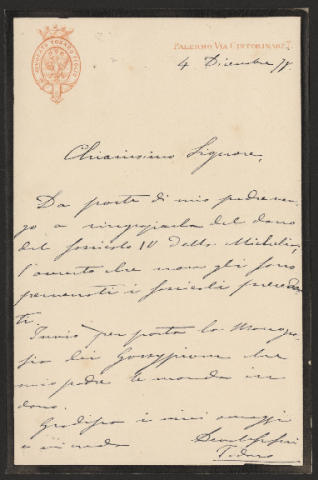 PALERMO VIA CINTORINARI 7.
4 Dicembre 78.
Chiarissimo Signore,
Da parte di mio padre ven-
go a ringraziarla del dono
del fascicolo IV della Michelia,
l'avverto che non gli sono
pervenuti i fascicoli preceden
ti.
Invio per posta la Monogra-
fia dei Gossypium che
mio padre le manda in
dono.
Gradisca i miei omaggi
e mi creda
Todaro